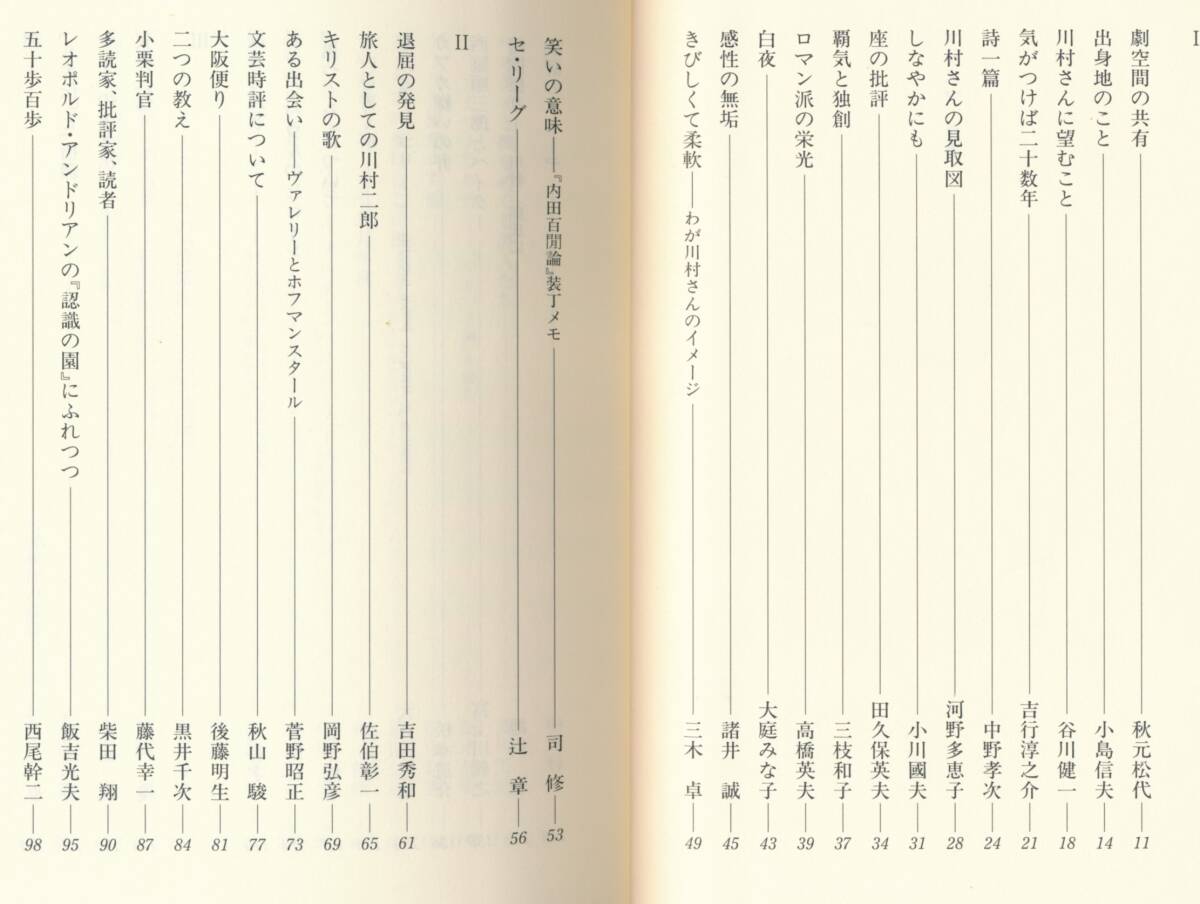 I
劇空間の共有――秋元松代――11
出身地のこと――小島信夫――14
川村さんに望むこと――谷川健一――18
気がつけば二十数年――吉行淳之介――21
詩一篇――中野孝次――24
川村さんの見取図――河野多恵子――28
しなやかにも――小川國夫――31
座の批評――田久保英夫――34
覇気と独創――三枝和子――37
ロマン派の栄光――高橋英夫――39
白夜――大庭みな子――43
感性の無垢――諸井 誠――45
きびしくて柔軟――わが川村さんのイメージ――三木 卓――49
笑いの意味――『内田百閒論』装丁メモ――司 修――53
セ・リーグ――辻 章――56
II
退屈の発見――吉田秀和――61
旅人としての川村二郎――佐伯彰一――65
キリストの歌――岡野弘彦――69
ある出会い――ヴァレリーとホフマンスタール――菅野昭正――73
文芸時評について――秋山 駿――77
大阪便り――後藤明生――81
二つの教え――黒井千次――84
小栗判官――藤代幸一――87
多読家、批評家、読者――柴田 翔――90
レオポルド・アンドリアンの『認識の園』にふれつつ――飯吉光夫――95
五十歩百歩――西尾幹二――98